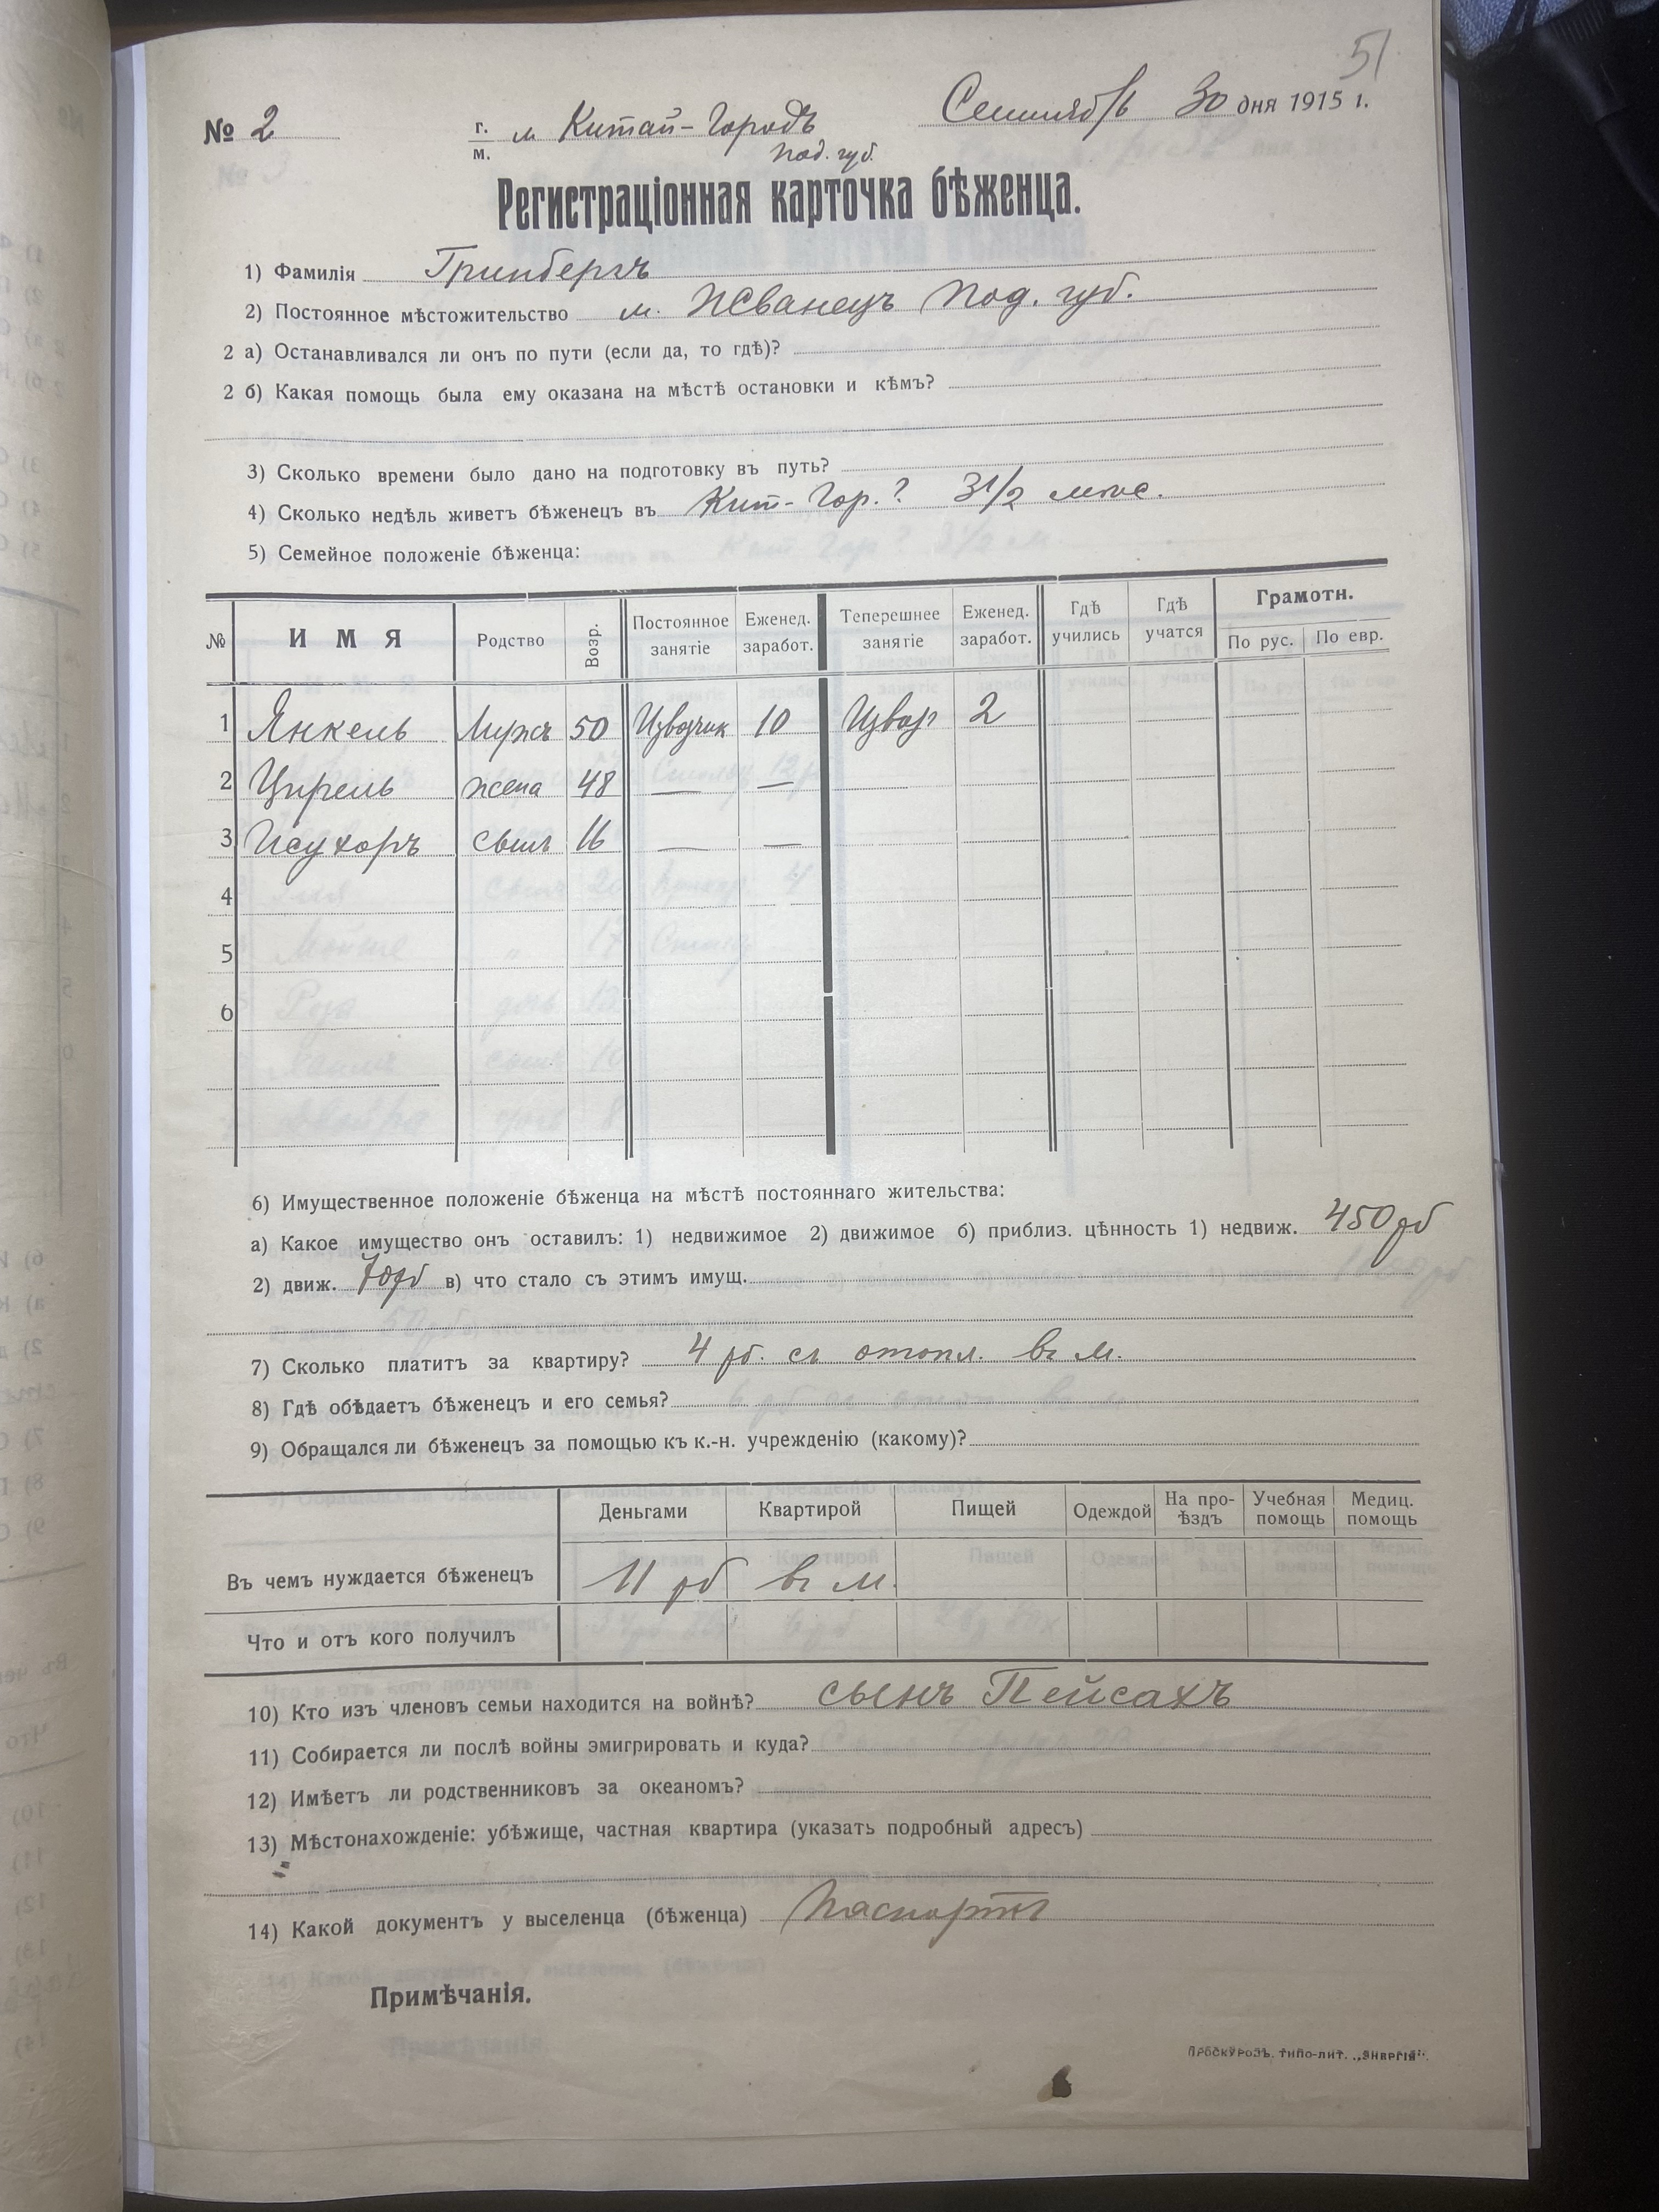 51
№ 2 г. м. м Китай-Городъ Сентябрь 30 дня 1915 г.
под. губ.
Регистраціонная карточка бѣженца.
1) Фамилія Гринбергъ
2) Постоянное мѣстожительство м. Жванецъ Под. губ.
2 а) Останавливался ли онъ по пути (если да, то гдѣ)?
2 б) Какая помощь была ему оказана на мѣстѣ остановки и кѣмъ?
3) Сколько времени было дано на подготовку въ путь?
4) Сколько недѣль живетъ бѣженецъ въ Кит-Гор.? 3 1/2 мѣс.
5) Семейное положеніе бѣженца:
№ ИМЯ Родство Возр. Постоянное занятіе Еженед. заработ. Теперешнее занятіе Еженед. заработ. Гдѣ учились Гдѣ учатся Грамотн. По рус. По евр.
1 Янкель Мужъ 50 Извозчик 10 Извоз 2
2 Цирель жена 48 — —
3 Исухоръ сынъ 16 — —
4
5
6
6) Имущественное положеніе бѣженца на мѣстѣ постояннаго жительства:
а) Какое имущество онъ оставилъ: 1) недвижимое 2) движимое б) приблиз. цѣнность 1) недвиж. 450 рб
2) движ. 70 рб в) что стало съ этимъ имущ.
7) Сколько платитъ за квартиру? 4 рб. съ отопл. въ м.
8) Гдѣ обѣдаетъ бѣженецъ и его семья?
9) Обращался ли бѣженецъ за помощью къ к.-н. учрежденію (какому)?
Деньгами Квартирой Пищей Одеждой На про-ѣздъ Учебная помощь Медиц. помощь
Въ чемъ нуждается бѣженецъ 11 рб въ м.
Что и отъ кого получилъ
10) Кто изъ членовъ семьи находится на войнѣ? сынъ Пейсахъ
11) Собирается ли послѣ войны эмигрировать и куда?
12) Имѣетъ ли родственниковъ за океаномъ?
13) Мѣстонахожденіе: убѣжище, частная квартира (указать подробный адресъ)
14) Какой документъ у выселенца (бѣженца) Паспортъ
Примѣчанія.
ПРОСКУРОВЪ. ТИПО-ЛИТ. „ЭНЕРГІЯ“.